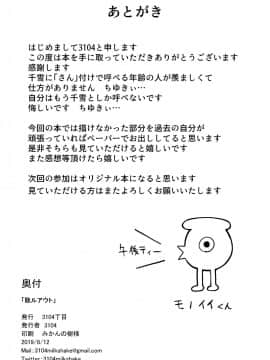 あとがき
はじめまして3104と申します
この度は本を手に取っていただきありがとうございます
感謝します
千雪に「さん」付けで呼べる年齢の人が羨ましくて
仕方がありません ちゆきぃ…
自分はもう千雪としか呼べないです
悔しいです ちゆきぃ…
今回の本では描けなかった部分を過去の自分が
頑張っていればペーパーでお出ししてると思います
是非そちらも見ていただけると嬉しいです
また感想等頂けたら嬉しいです
次回の参加はオリジナル本になると思います
見ていただける方はまたよろしくお願いいたします
午後ティー
モノイイくん
奥付
発行 3104丁目
発行者 3104
印刷 みかんの樹様
2019/8/12
Mail: 3104milkshake@gmail.com